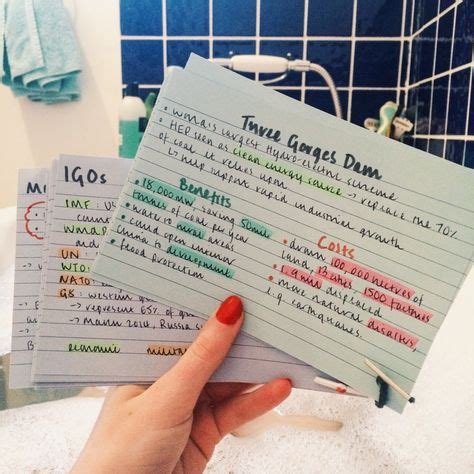 Three Gorges Dam
• World's largest Hydro-electric scheme
• HEP seen as clean energy source → replace the 70% of coal it relies upon
↳ help support rapid industrial growth
Benefits
• 18,000MW saving 50mil tonnes of coal per year
• water to rural areas
• could open interior China to development
• flood protection
Costs
• drown 100,000 hectres of land, 13 cities 1500 factories
• 1.9mil displaced
• more natural disasters, e.g earthquakes.
IGOs
IMF: US
World
UN:
WTO:
NATO
G8: western
→ represent 65% of
→ March 2014, Russia
economic military